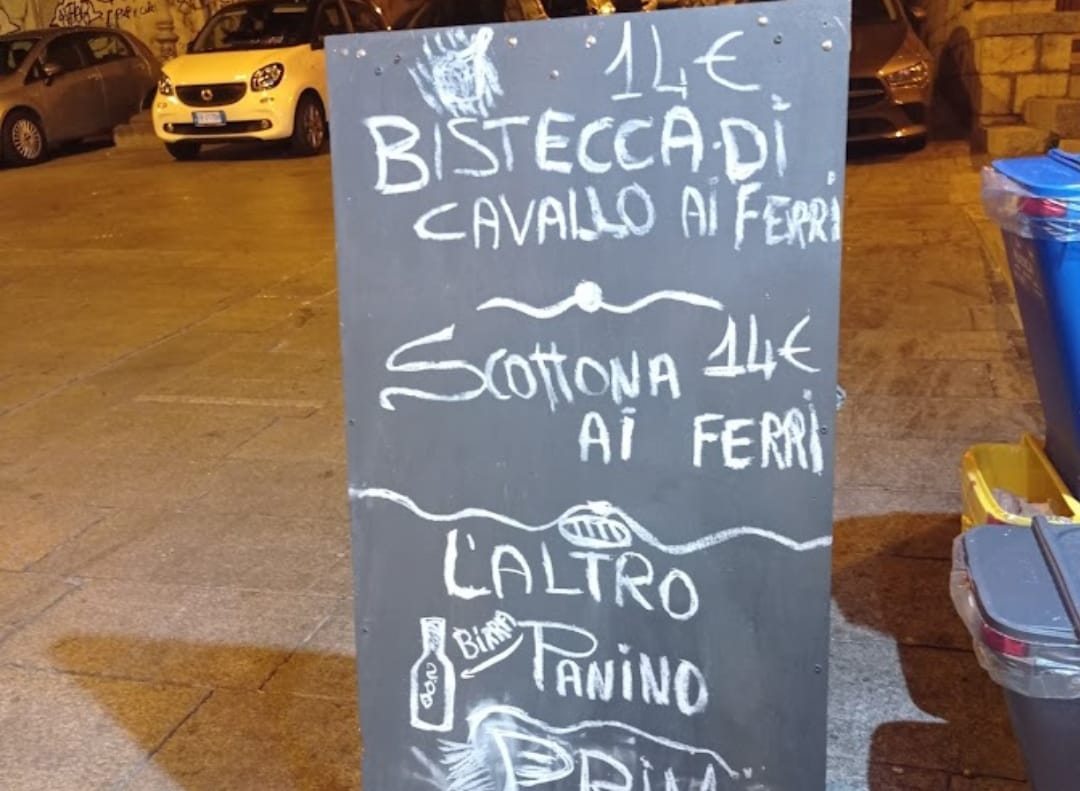 14€
BISTECCA DI
CAVALLO AI FERRI
SCOTTONA 14€
AI FERRI
L'ALTRO
BIRRA
PANINO